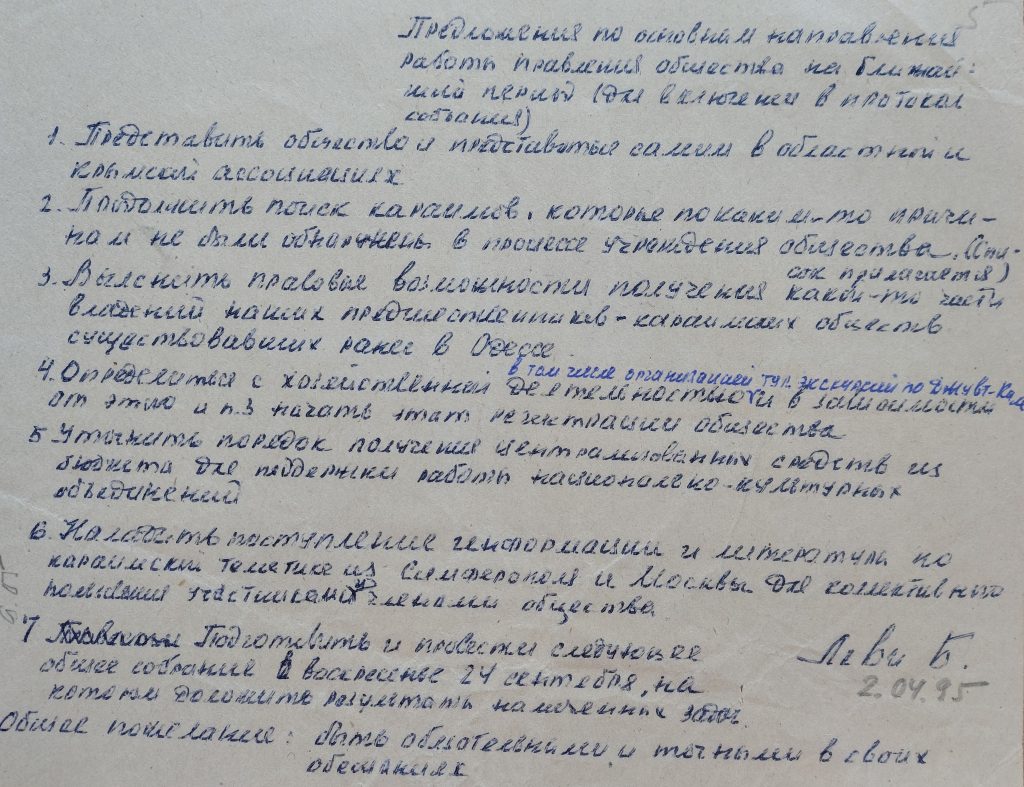 5
Предложения по основным направления
работы правления общества на ближай-
ший период (для включения в протокол
собрания)
1. Представить общество и представиться самим в областной и
крымской ассоциациях
2. Продолжить поиск караимов, которые по каким-то причи-
нам не были обнаружены в процессе учреждения общества. (Спи-
сок прилагается)
3. Выяснить правовые возможности получения какой-то части
владений наших предшественников - караимских обществ
существовавших ранее в Одессе
в том числе организацией тур. экскурсий по Джуфт-Кале
4. Определиться с хозяйственной деятельностью и в зависимости
от этого и п.3 начать этап регистрации общества
5 Уточнить порядок получения централизованных средств из
бюджета для поддержки работы национально-культурных
объединений
6. Наладить поступление информации и литературы по
караимской тематике из Симферополя и Москвы для коллективного
членами общества
7 Подготовить и провести следующее
общее собрание в воскресенье 24 сентября, на
котором доложить результаты намеченных задач.
Леви Б.
2.04.95
Общее пожелание: быть обязательными и точными в своих
обещаниях